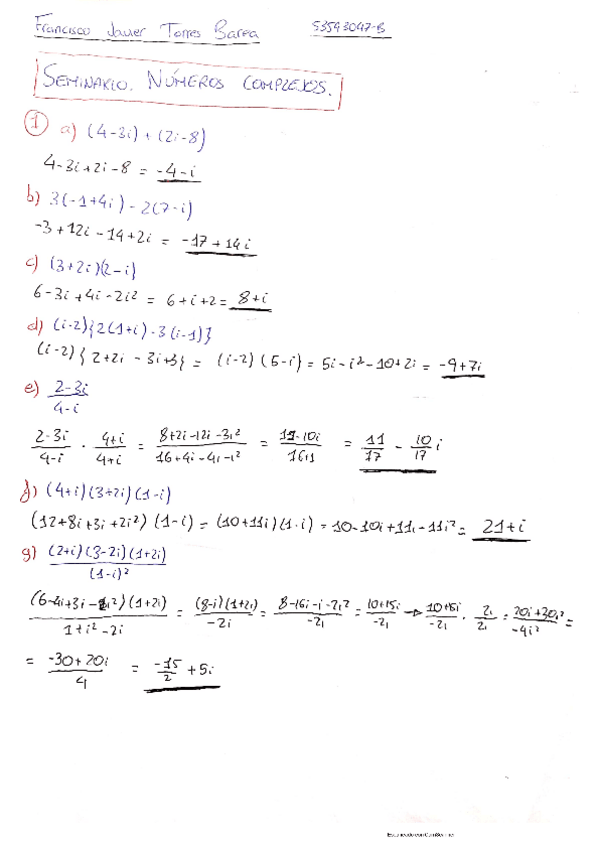 Francisco Javier Torres Barea 53543047-B
SEMINARIO. NÚMEROS COMPLEJOS.
1 a) (4-3i) + (2i-8)
4-3i+2i-8 = -4-i
b) 3(-1+4i) - 2(7-i)
-3+12i-14+2i = -17+14i
c) (3+2i)(2-i)
6-3i+4i-2i² = 6+i+2 = 8+i
d) (i-2){2(1+i)-3(i-1)}
(i-2){2+2i-3i+3} = (i-2)(5-i) = 5i-i²-10+2i = -9+7i
e) (2-3i)/(4-i)
(2-3i)/(4-i) · (4+i)/(4+i) = (8+2i-12i-3i²)/(16+4i-4i-i²) = (11-10i)/(16+1) = 11/17 - 10/17 i
f) (4+i)(3+2i)(1-i)
(12+8i+3i+2i²)(1-i) = (10+11i)(1-i) = 10-10i+11i-11i² = 21+i
g) (2+i)(3-2i)(1+2i)/(1-i)²
(6-4i+3i-2i²)(1+2i)/(1+i²-2i) = (8-i)(1+2i)/(-2i) = (8-16i-i-2i²)/(-2i) = (10+15i)/(-2i) → (10+15i)/(-2i) · 2i/2i = (20i+30i²)/(-4i²) =
= (-30+20i)/4 = -15/2 + 5i
Escaneado con CamScanner